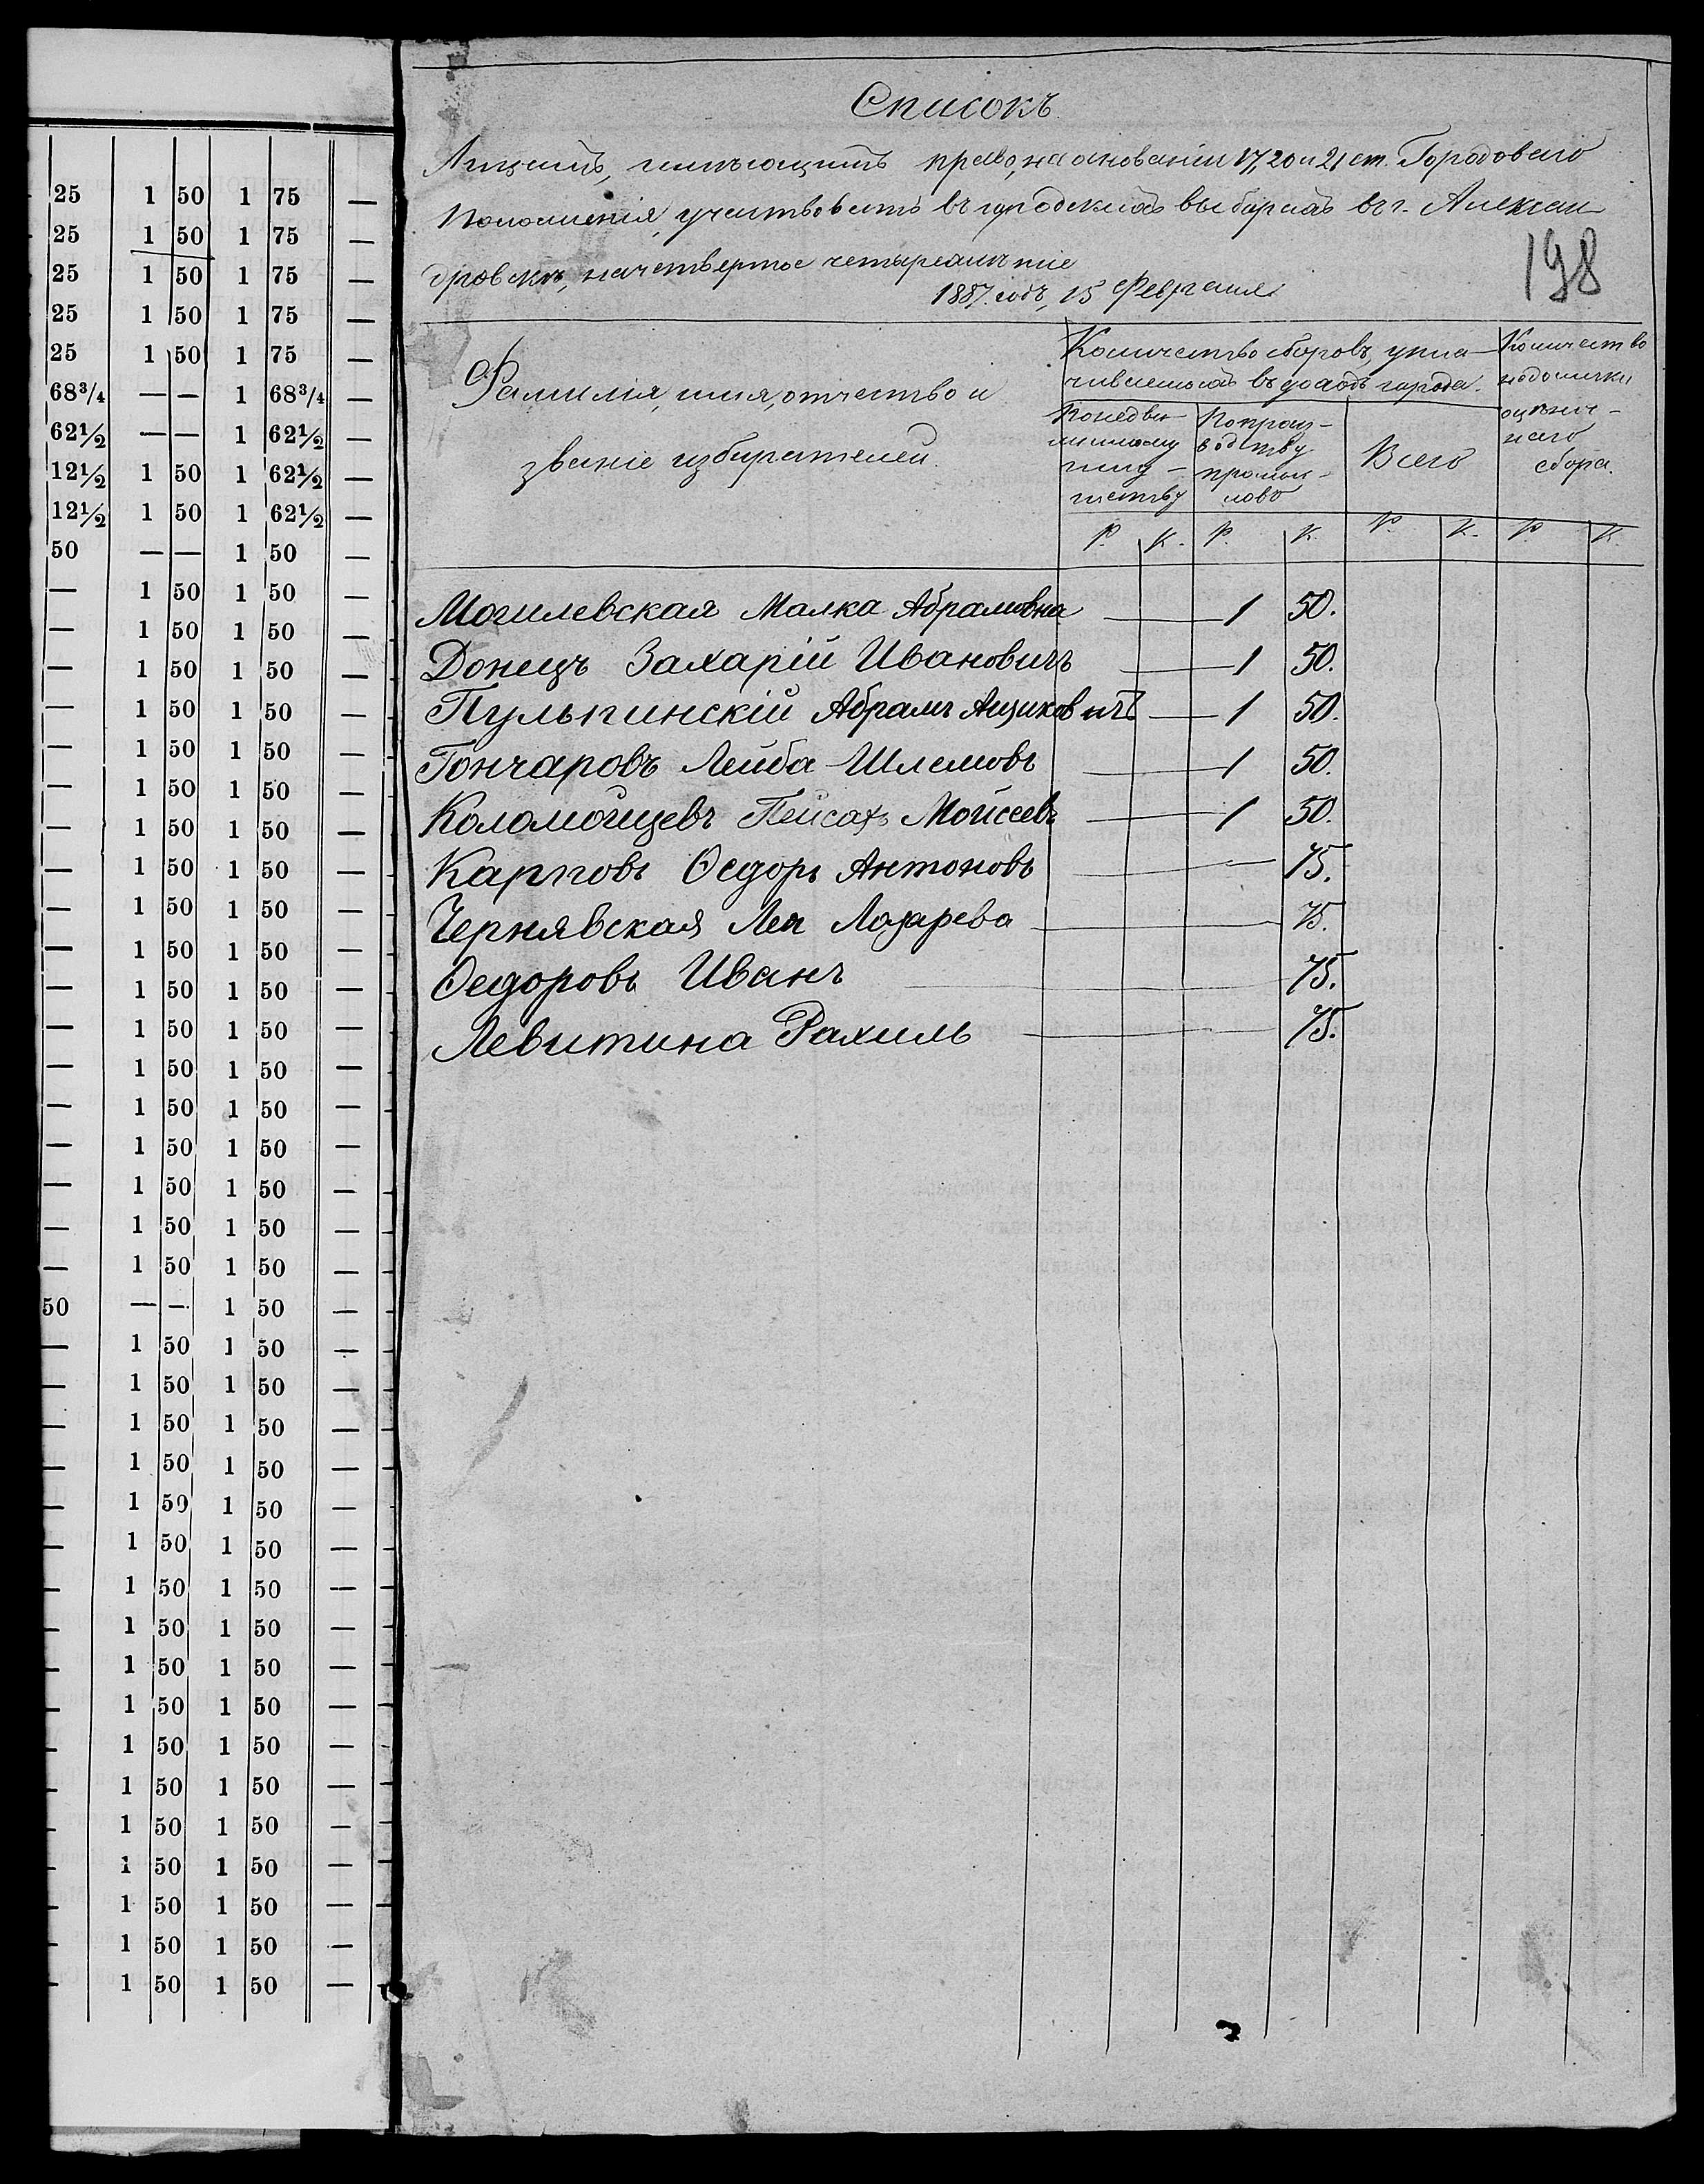 25 1 50 1 75 —
25 1 50 1 75 —
25 1 50 1 75 —
25 1 50 1 75 —
25 1 50 1 75 —
68³/₄ — — 1 68³/₄ —
62½ — — 1 62½ —
12½ 1 50 1 62½ —
12½ 1 50 1 62½ —
50 — — 1 50 —
— 1 50 1 50 —
— 1 50 1 50 —
— 1 50 1 50 —
— 1 50 1 50 —
— 1 50 1 50 —
— 1 50 1 50 —
— 1 50 1 50 —
— 1 50 1 50 —
— 1 50 1 50 —
— 1 50 1 50 —
— 1 50 1 50 —
— 1 50 1 50 —
— 1 50 1 50 —
— 1 50 1 50 —
— 1 50 1 50 —
— 1 50 1 50 —
— 1 50 1 50 —
— 1 50 1 50 —
50 — — 1 50 —
— 1 50 1 50 —
— 1 50 1 50 —
— 1 50 1 50 —
— 1 50 1 50 —
— 1 59 1 50 —
— 1 50 1 50 —
— 1 50 1 50 —
— 1 50 1 50 —
— 1 50 1 50 —
— 1 50 1 50 —
— 1 50 1 50 —
— 1 50 1 50 —
— 1 50 1 50 —
— 1 50 1 50 —
— 1 50 1 50 —
— 1 50 1 50 —
— 1 50 1 50 —
Списокъ
Лицамъ, имѣющимъ право, на основаніи 17, 20 и 21 ст. Городоваго
Положенія, участвовать въ городскихъ выборахъ въ г. Алексан
дровскѣ, на четвертое четырехлѣтіе
1887 годъ, 15 Февраля
198
Фамилія, имя, отчество и
званіе избирателей.
Количество сборовъ, упла-
чиваемыхъ въ доходъ города.
Количество
недоимки
оцѣноч-
наго
сбора.
По недви
жимому
иму-
ществу
По произ-
водству
промыс-
ловъ
Всего
Р. К. Р. К. Р. К. Р. К.
Могилевская Малка Абрамовна — 1 50.
Донецъ Захарій Ивановичъ — 1 50.
Пульпинскій Абрамъ Ициковичъ — 1 50.
Гончаровъ Лейба Шлемовъ — 1 50.
Коломойцевъ Пейсахъ Мойсеевъ — 1 50.
Карповъ Ѳедоръ Антоновъ — 75.
Чернявская Лея Лазарева — 75.
Ѳедоровъ Иванъ — 75.
Левитина Рахиль — 75.